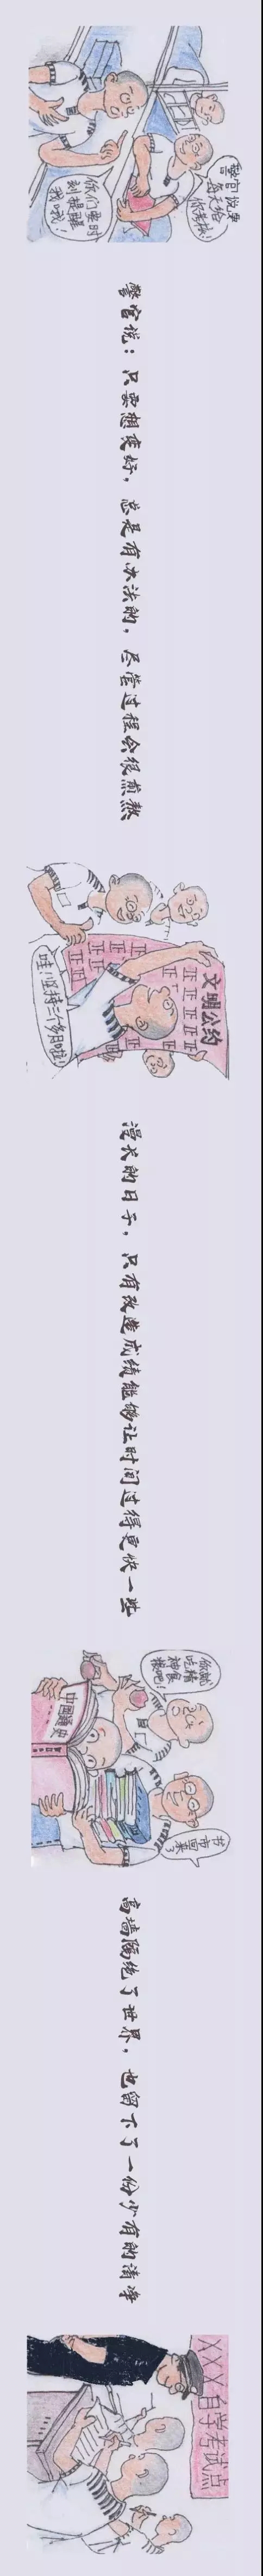 警官说要
每天
你们要时
刻提醒
我哦!
警官说:只要想变好,总是有办法的,尽管过程会很煎熬
文明公约
正正正正正
正正正
正正
哇!坚持三个多月啦!
漫长的日子,只有改造成绩能够让时间过得更快一些
你就
吃精
神食
粮吧!
中国通史
高墙隔绝了世界,也留下了一份少有的清净
XXX自学考试点